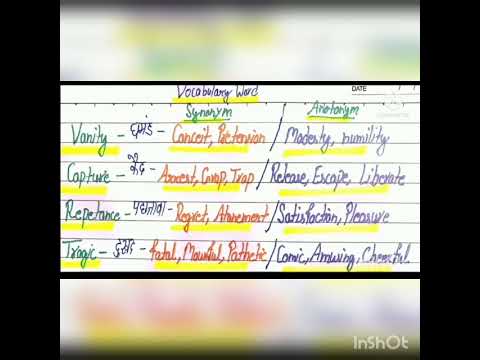 Vocabulary Word
DATE
Synonym / Anotonym
Vanity - घमंड - Conceit, Pretension / Modesty, humility
Capture - कैद - Arrest, Grap, Trap / Release, Escape, Liberate
Repetance - पछतावा - Regret, Atonement / Satisfaction, Pleasure
Tragic - दुखद - Fatal, Mournful, Pathetic / Comic, Amusing, Cheerful.
InShOt